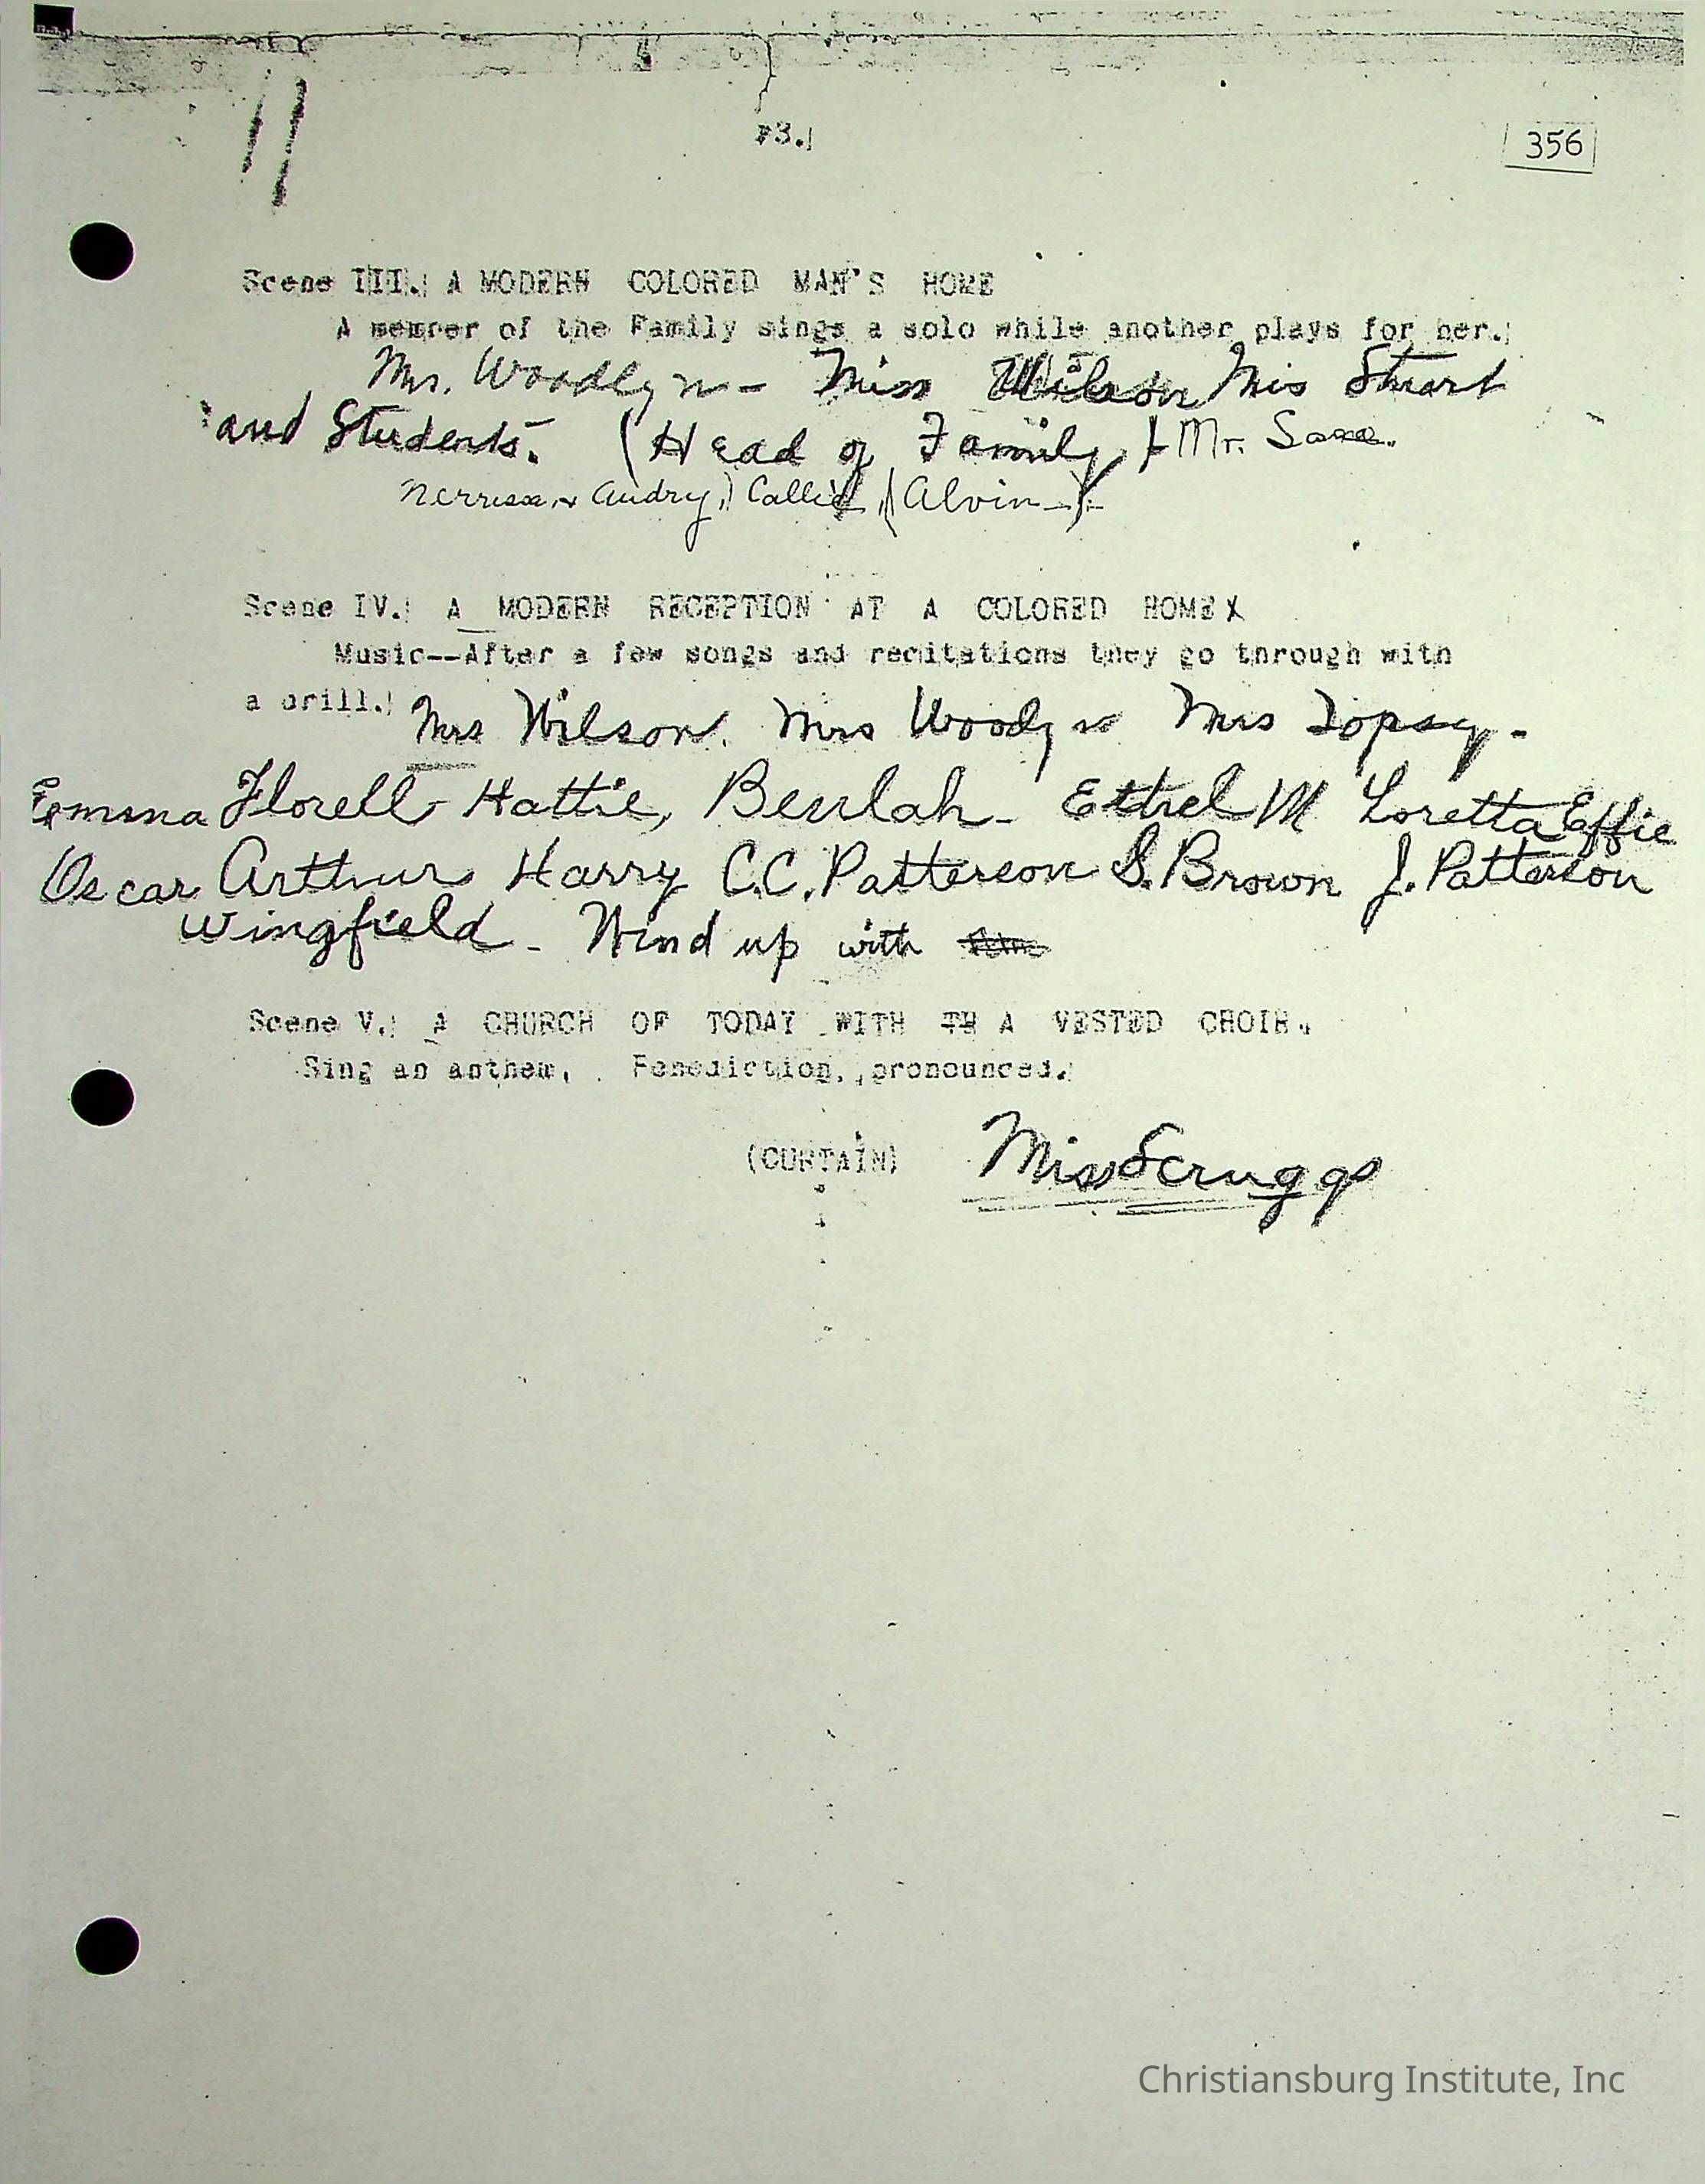 #3.
356
Scene III. A MODERN COLORED MAN'S HOME
A member of the Family sings a solo while another plays for her.
Mrs. Woodlyn - Miss Wilson Mis Stuart
and Students. (Head of Family) Mr.
Audry, Callie (Alvin -)
Scene IV. A MODERN RECEPTION AT A COLORED HOMEX
Music--After a few songs and recitations they go through with
a drill.
Mrs Wilson. Mrs Woodyn Mrs Topsy.
Emma Florell Hattie, Beulah - Ethel M Loretta Effie
Oscar Arthur Harry C.C. Patterson S. Brown J. Patterson
Wingfield - Wind up with
Scene V. A CHURCH OF TODAY WITH TH A VESTED CHOIR.
Sing an anthem, Benediction, pronounced.
(CURTAIN) Miss Scruggs
Christiansburg Institute, Inc